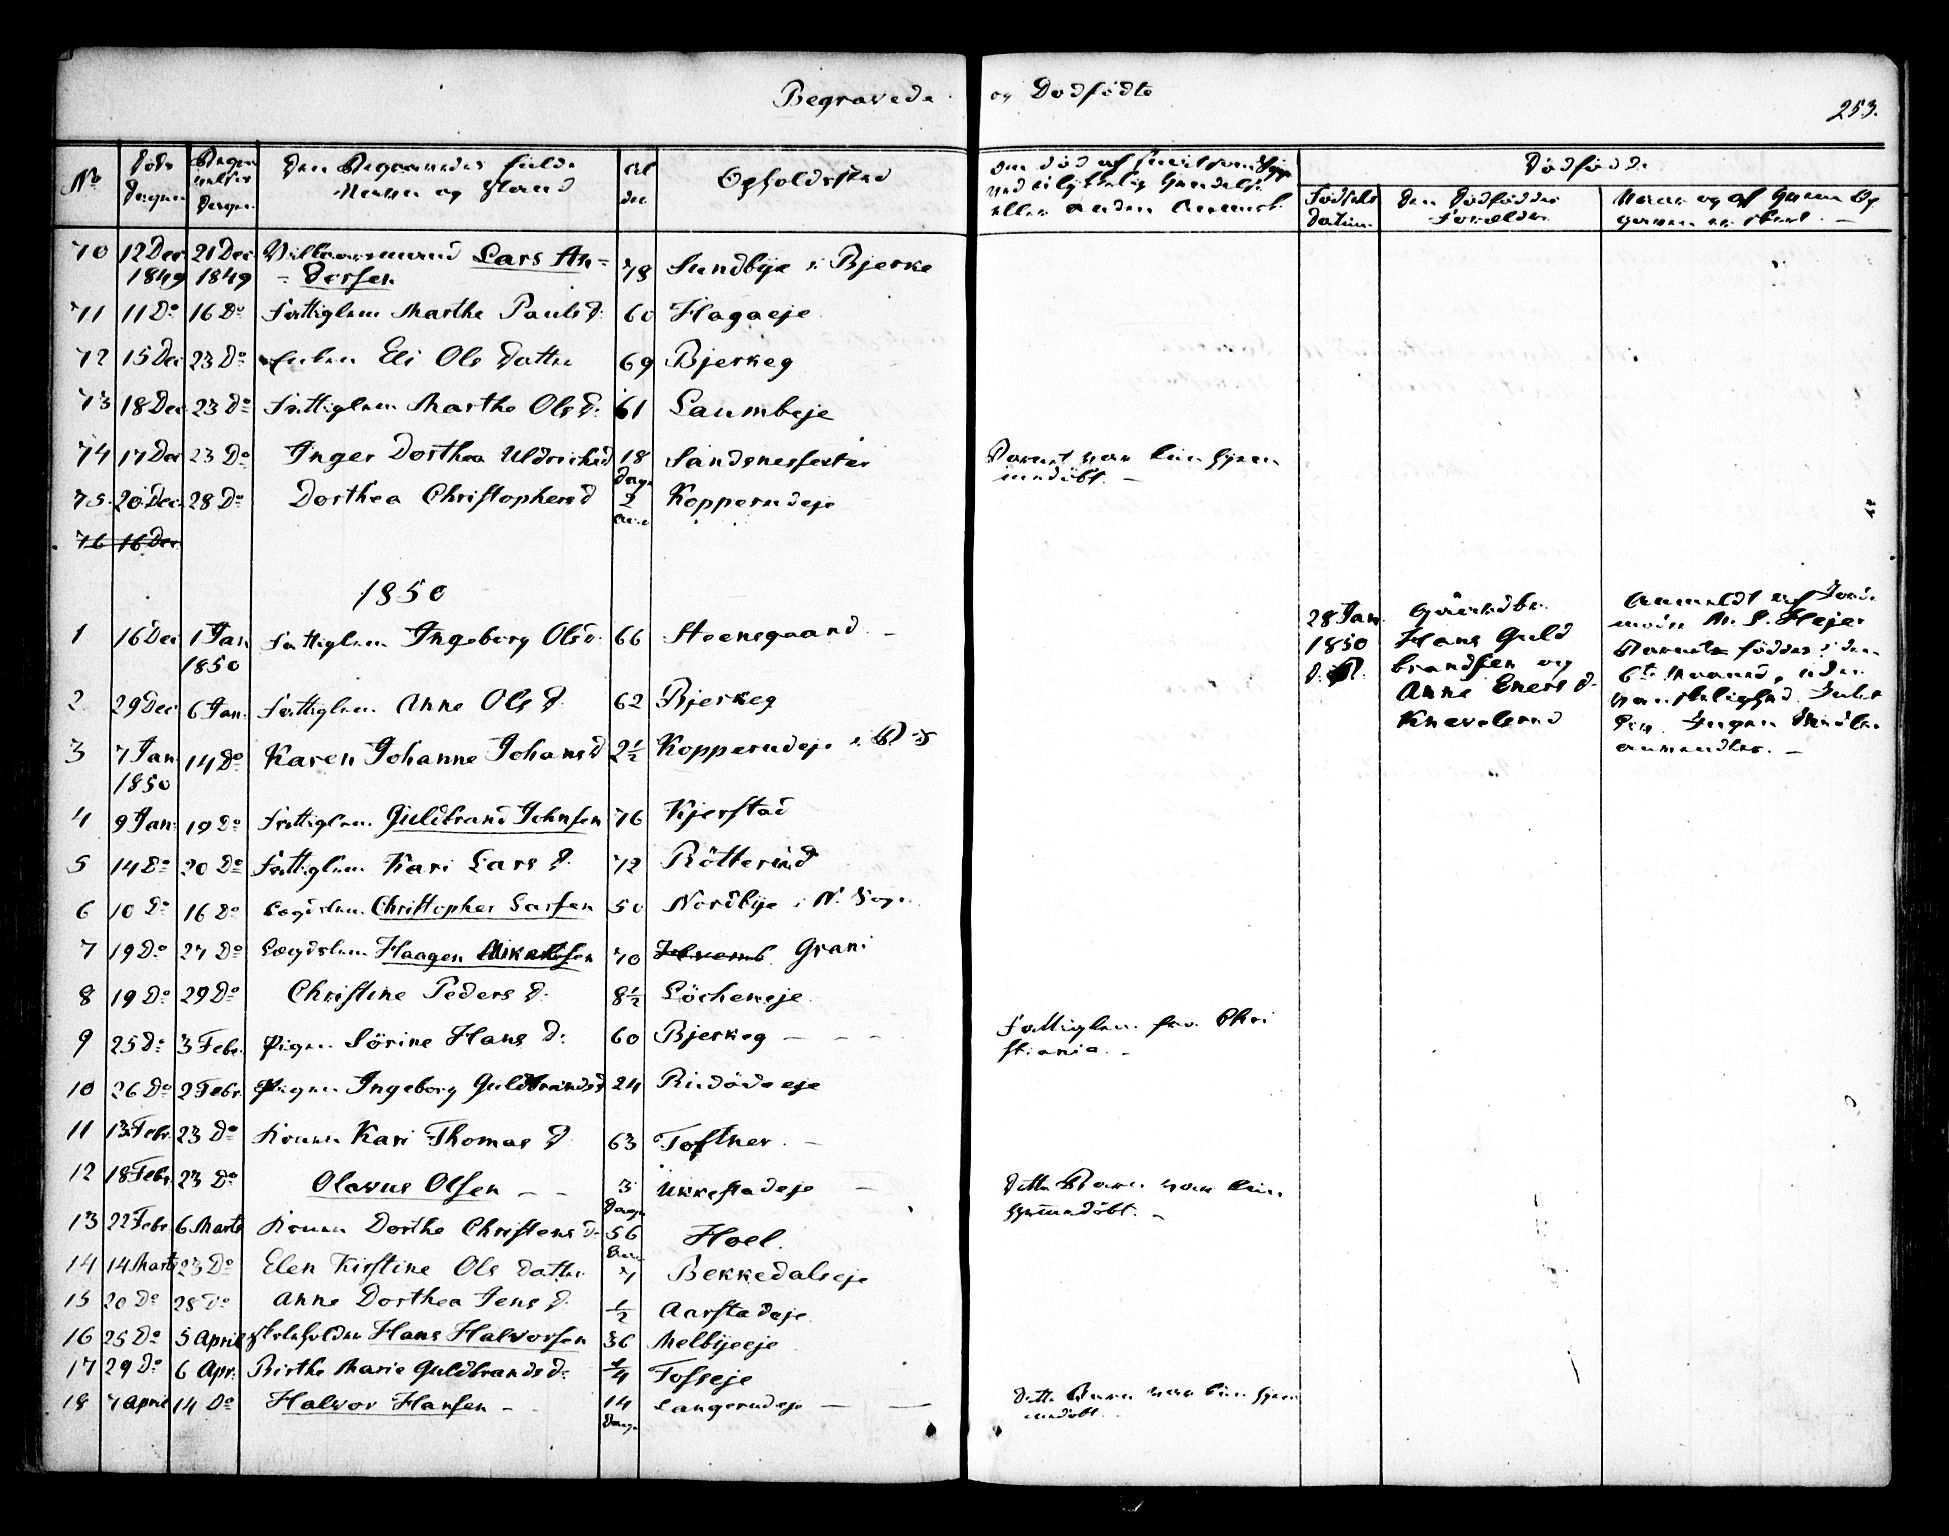 Begravede og Dødfødte
253.
No Døds Dagen Begra velses Dagen Den Begravedes fulde Navn og Stand Al der Opholdssted
Dødfødte
Fødsels Datum Den Dødføddes Forældre
70 12 Dec 1849 21 Dec 1849 Lars An-
dersen 78 Sundbye i Bjerke
71 11 Do 16 Do Fattiglem Marthe Pauls D. 60 Hagaeje
72 15 Dec 23 Do Enken Eli Ols Datter 69 Bjerkeg
73 18 Dec 23 Do Fattiglem Marthe Ols D: 61 Laumbeje
74 17 Dec 23 Do Inger Dorthea Uldrichsd 18 Dage Sandsnesfexter Barnet var kun hjem
medøbt. -
75. 20 Dec. 28 Do Dorthea Christophersd 2 Kopperudeje
76 16 Dec
1850
1 16 Dec 1 Jan 1850 Fattiglem Ingeborg Olsd. 66 Steensgaard -
28 Jan 1850 Gaardbr. Hans Guld
brandsen og
Anne Eners D.
Knevelsrud
Anmeldt af Jorde
moder M. S. Hejer
Barnet føddes i den
6te Maaned, uden
vanskelighed.
anvendtes. -
2 29 Dec 6 Jan. Fattiglem Anne Ols D. 62 Bjerkeg
3 7 Jan 1850 14 Do Karen Johanne Johansd 2½ Kopperudeje i
4 9 Jan. 19 Do Fattiglem Guldbrand Johnsen 76 Kjerstad
5 14 Do 20 Do Fattiglem Kari Lars D. 72 Rötterud
6 10 Do 16 Do Lægdslem Christopher Larsen 50 Nordbye i N. Sogn
7 19 Do 27 Do Lægdslem Haagen Mikkelsen 70 Grani
8 19 Do 29 Do Christine Peders D. 8½ Löcheneje
9 25 Do 3 Febr. Pigen Sörine Hans D: 60 Bjerkeg - - - Fattiglem fra Chri
stiania. -
10 26 Do 2 Febr. Pigen Ingeborg Guldbrandsd 24 Rudödseje
11 13 Febr. 23 Do Konen Kari Thomas D. 63 Toftner. -
12 18 Febr. 23 Do Olavus Olsen - - 3 Dage Ukkestadeje - Dette Barn var kun
hjemmedøbt. -
13 22 Febr. 6 Marts Konen Dorthe Christens D. 56 Hoel.
14 14 Marts 23 Do Elen Kirstine Ols Datter 7 Bekkedalseje
15 20 Do 28 Do Anne Dorthea Jens D. ½ Aarstadeje
16 25 Do 5 April Hans Halvorsen 36 Melbyeeje
17 29 Do 6 Apr. Birthe Marie Guldbrands D: ¼ Tofseje
18 7 April 14 Do Halvor Hansen - - 14 Dage Langerudeje - - Dette Barn var kun hjem
medøbt.